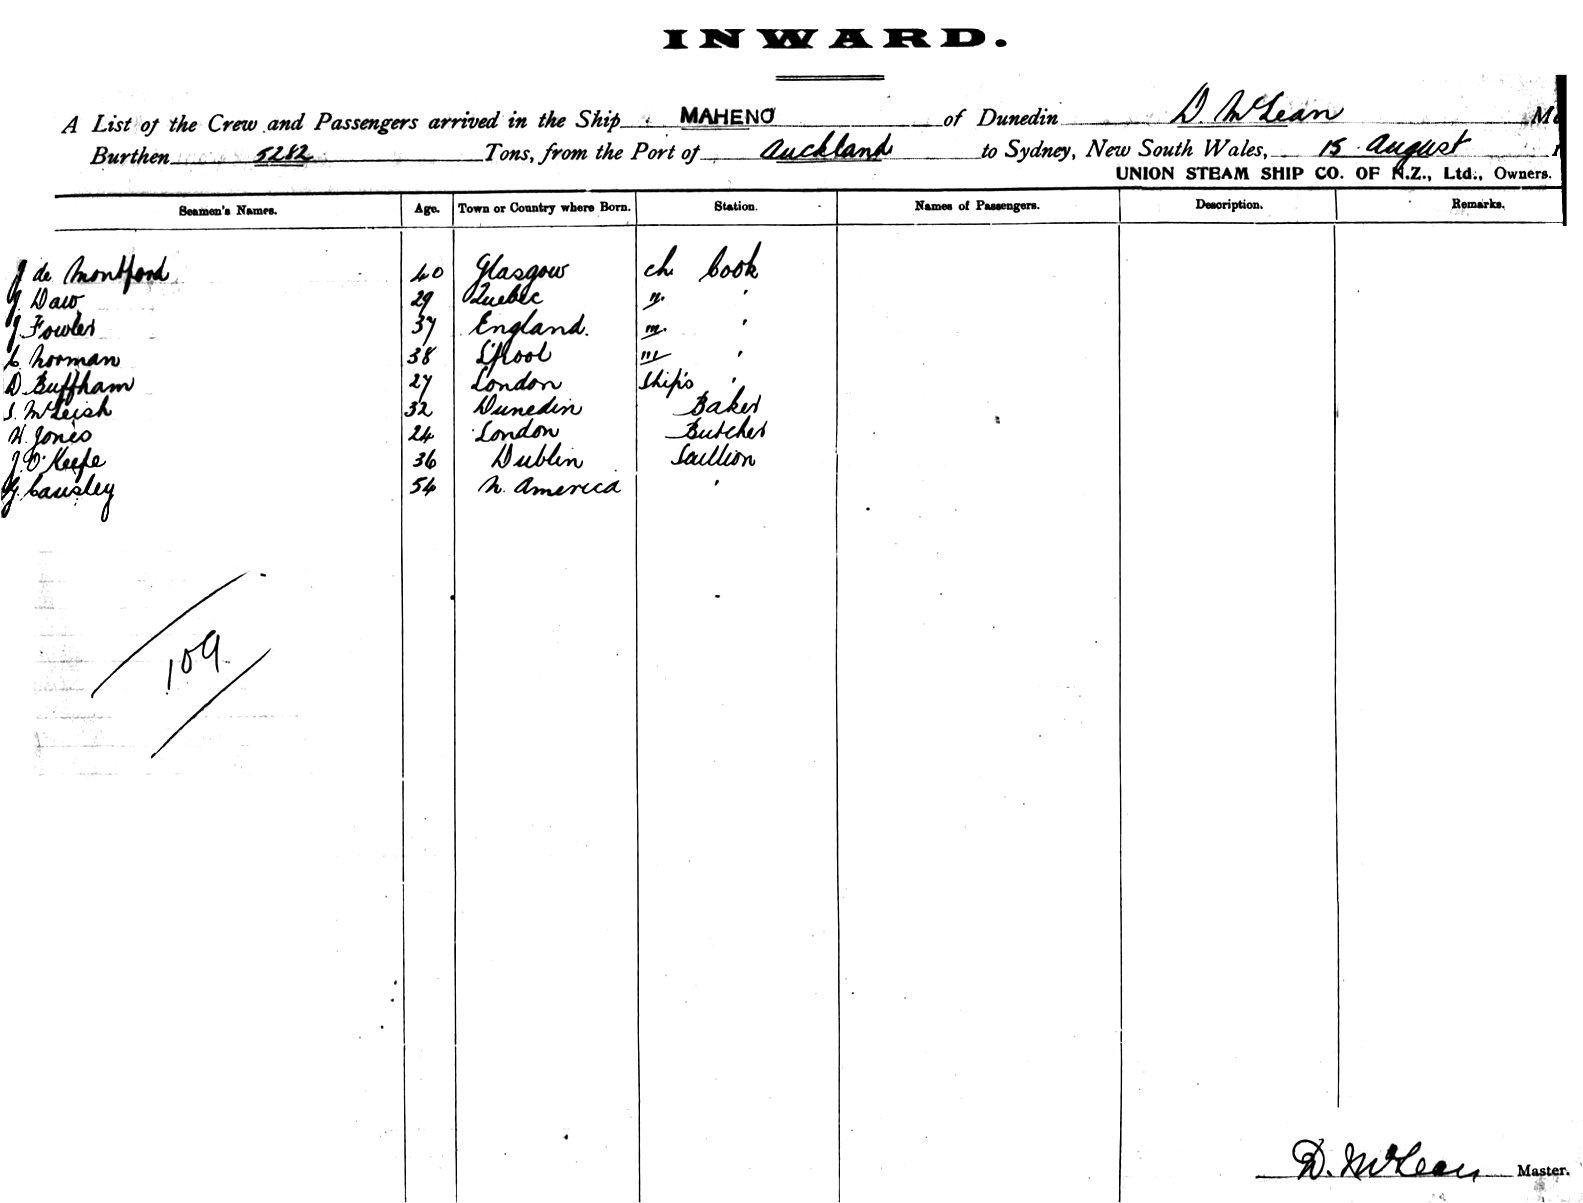 INWARD.
A List of the Crew and Passengers arrived in the Ship MAHENO of Dunedin D. McLean
Burthen 5282 Tons, from the Port of Auckland to Sydney, New South Wales, 15 August
UNION STEAM SHIP CO. OF N.Z., Ltd., Owners.
Seamen's Names. Age. Town or Country where Born. Station. Names of Passengers. Description. Remarks.
J de Montford 40 Glasgow ch. Cook
J. Daw 29 Quebec ". '
J Fowler 37 England. "'. '
C Norman 38 L'pool "" '
D Buffham 27 London Ship's '
J. McLeish 32 Dunedin Baker
H. Jones 24 London Butcher
J. O'Keefe 36 Dublin Scullion
G. Causley 54 N. America '
109
D. McLean Master.